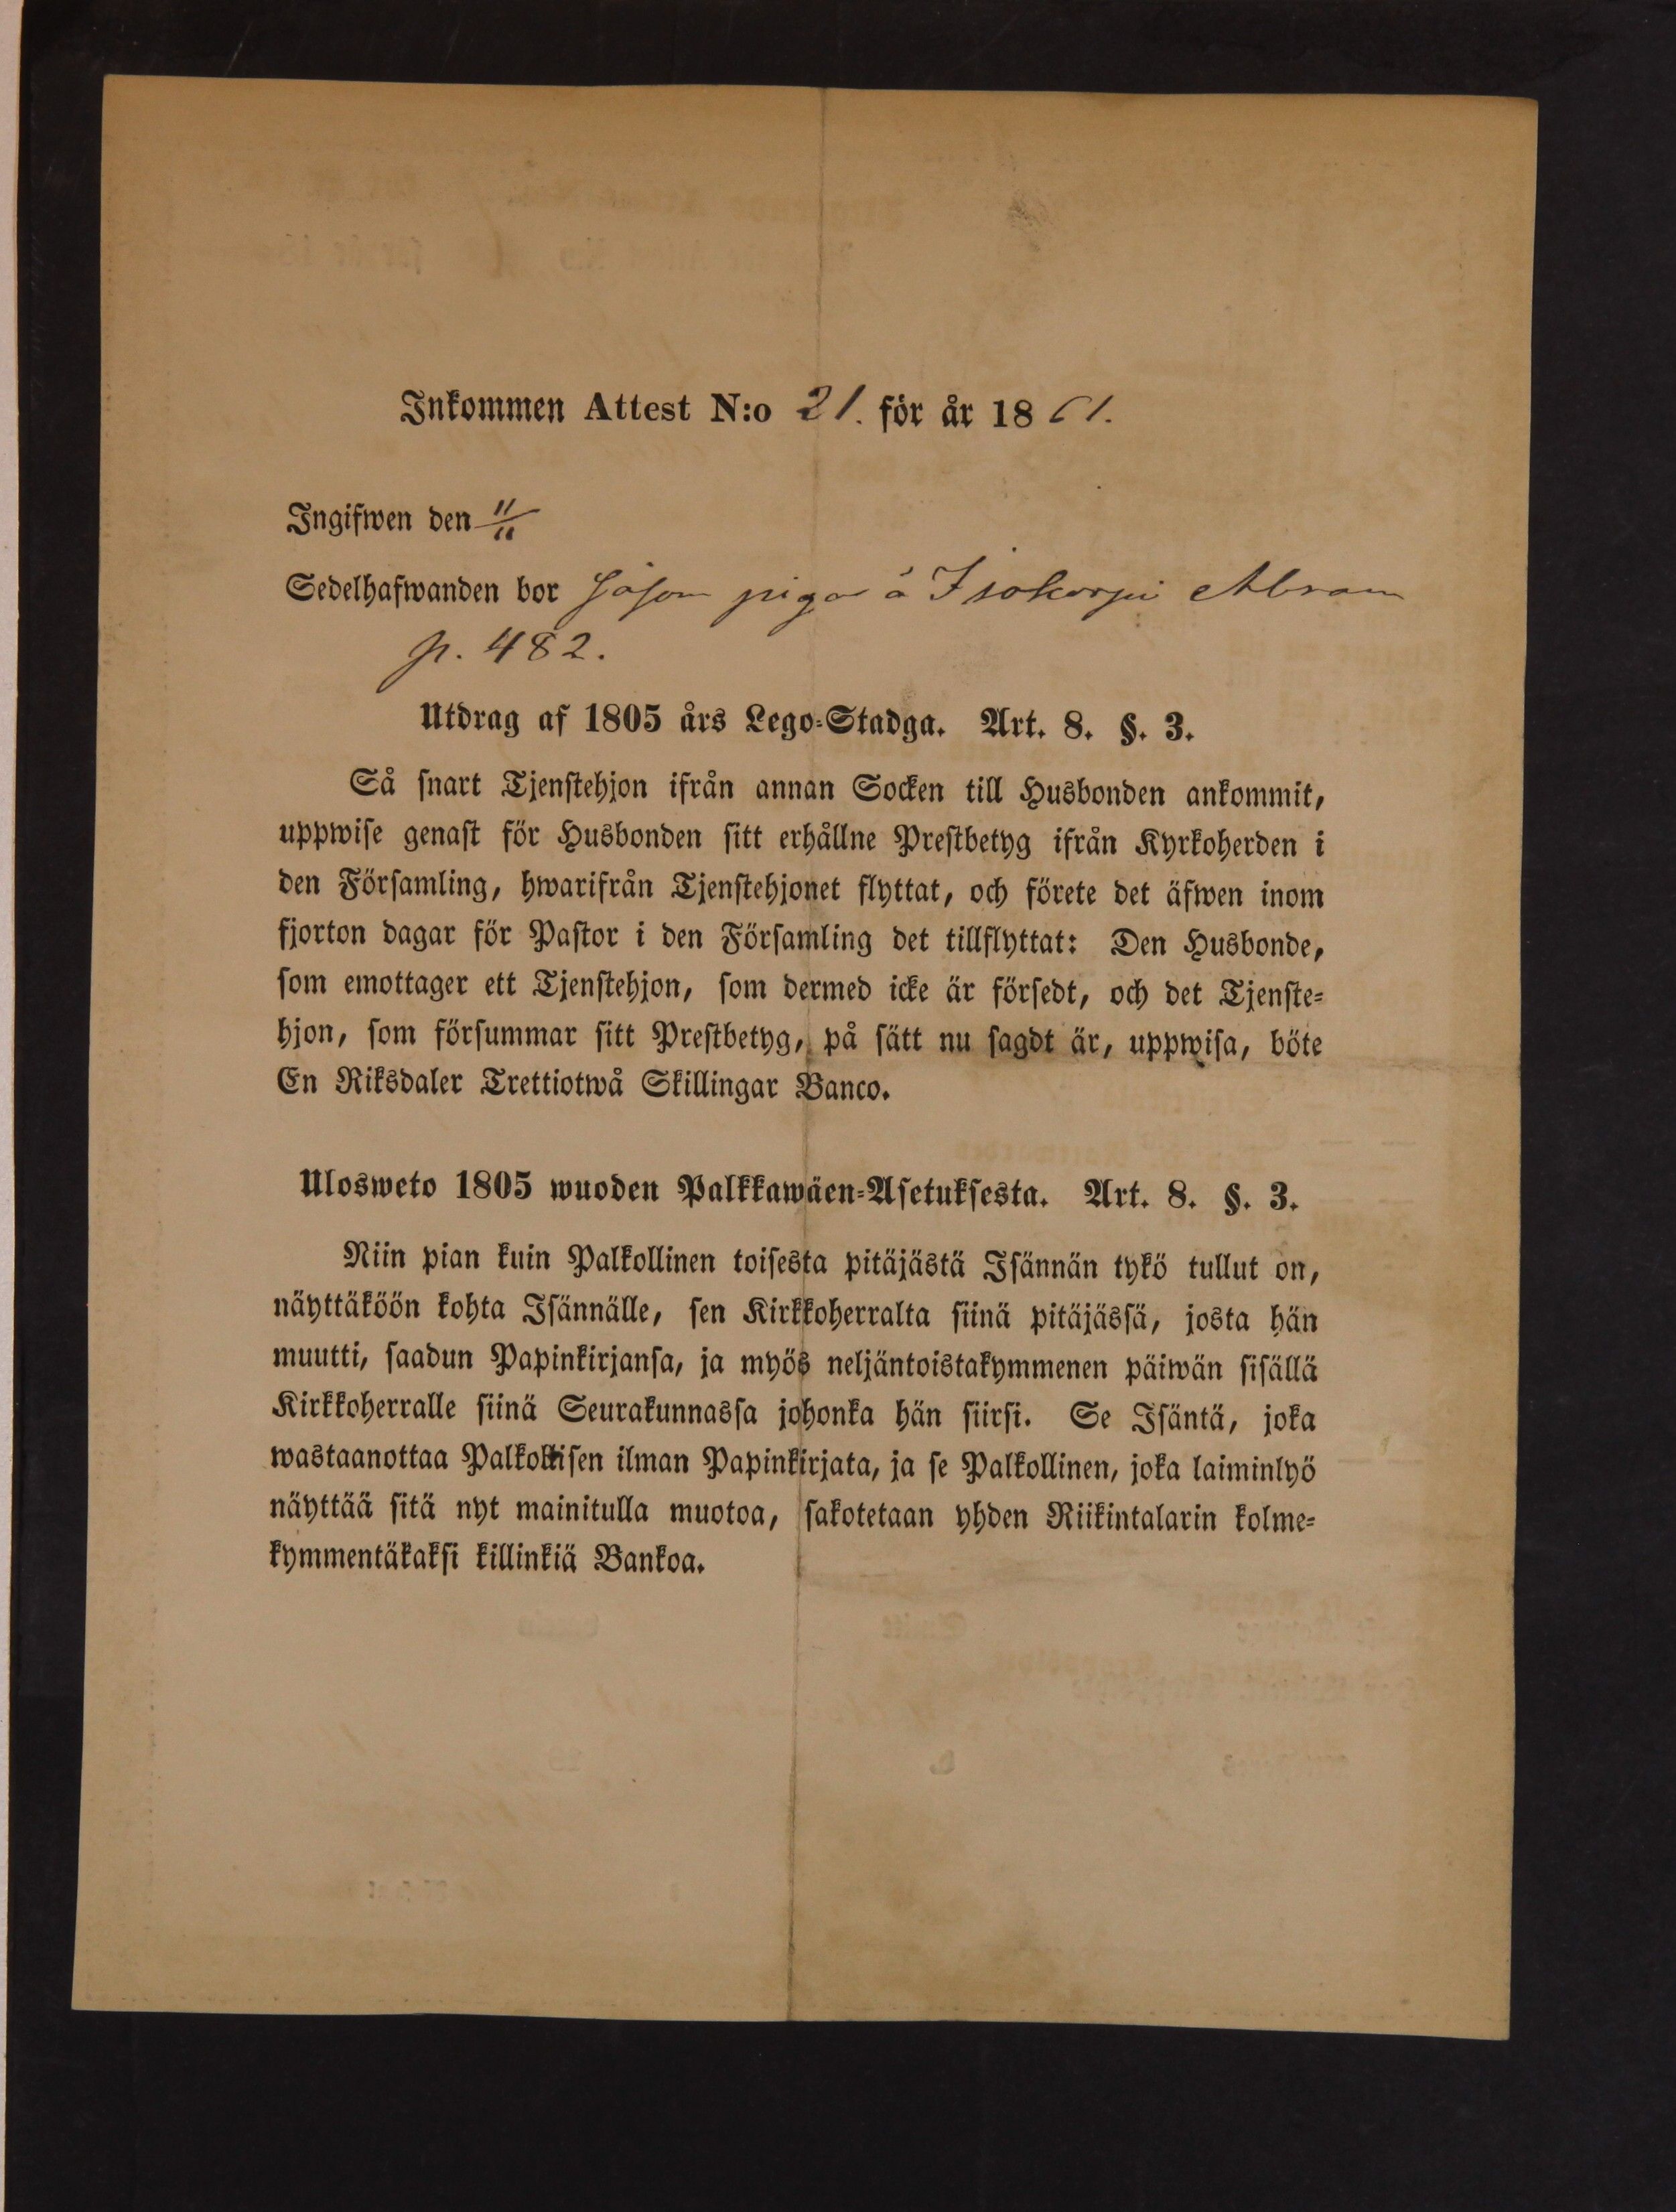 Inkommen Attest N:o 21. för år 1861.
Ingifwen den 11/11
Sedelhafwanden bor såsom piga å Isokorpi Abram
p. 482.
Utdrag af 1805 års Lego-Stadga. Art. 8. §. 3.
Så snart Tjenstehjon ifrån annan Socken till Husbonden ankommit,
uppwise genast för Husbonden sitt erhållne Prestbetyg ifrån Kyrkoherden i
den Församling, hwarifrån Tjenstehjonet flyttat, och förete det äfwen inom
fjorton dagar för Pastor i den Församling det tillflyttat: Den Husbonde,
som emottager ett Tjenstehjon, som dermed icke är försedt, och det Tjenste-
hjon, som försummar sitt Prestbetyg, på sätt nu sagdt är, uppwisa, böte
En Riksdaler Trettiotwå Skillingar Banco.
Ulosweto 1805 wuoden Palkkawäen-Asetuksesta. Art. 8. §. 3.
Niin pian kuin Palkollinen toisesta pitäjästä Isännän tykö tullut on,
näyttäköön kohta Isännälle, sen Kirkkoherralta siinä pitäjässä, josta hän
muutti, saadun Papinkirjansa, ja myös neljäntoistakymmenen päiwän sisällä
Kirkkoherralle siinä Seurakunnassa johonka hän siirsi. Se Isäntä, joka
wastaanottaa Palkollisen ilman Papinkirjata, ja se Palkollinen, joka laiminlyö
näyttää sitä nyt mainitulla muotoa, sakotetaan yhden Riikintalarin kolme-
kymmentäkaksi killinkiä Bankoa.